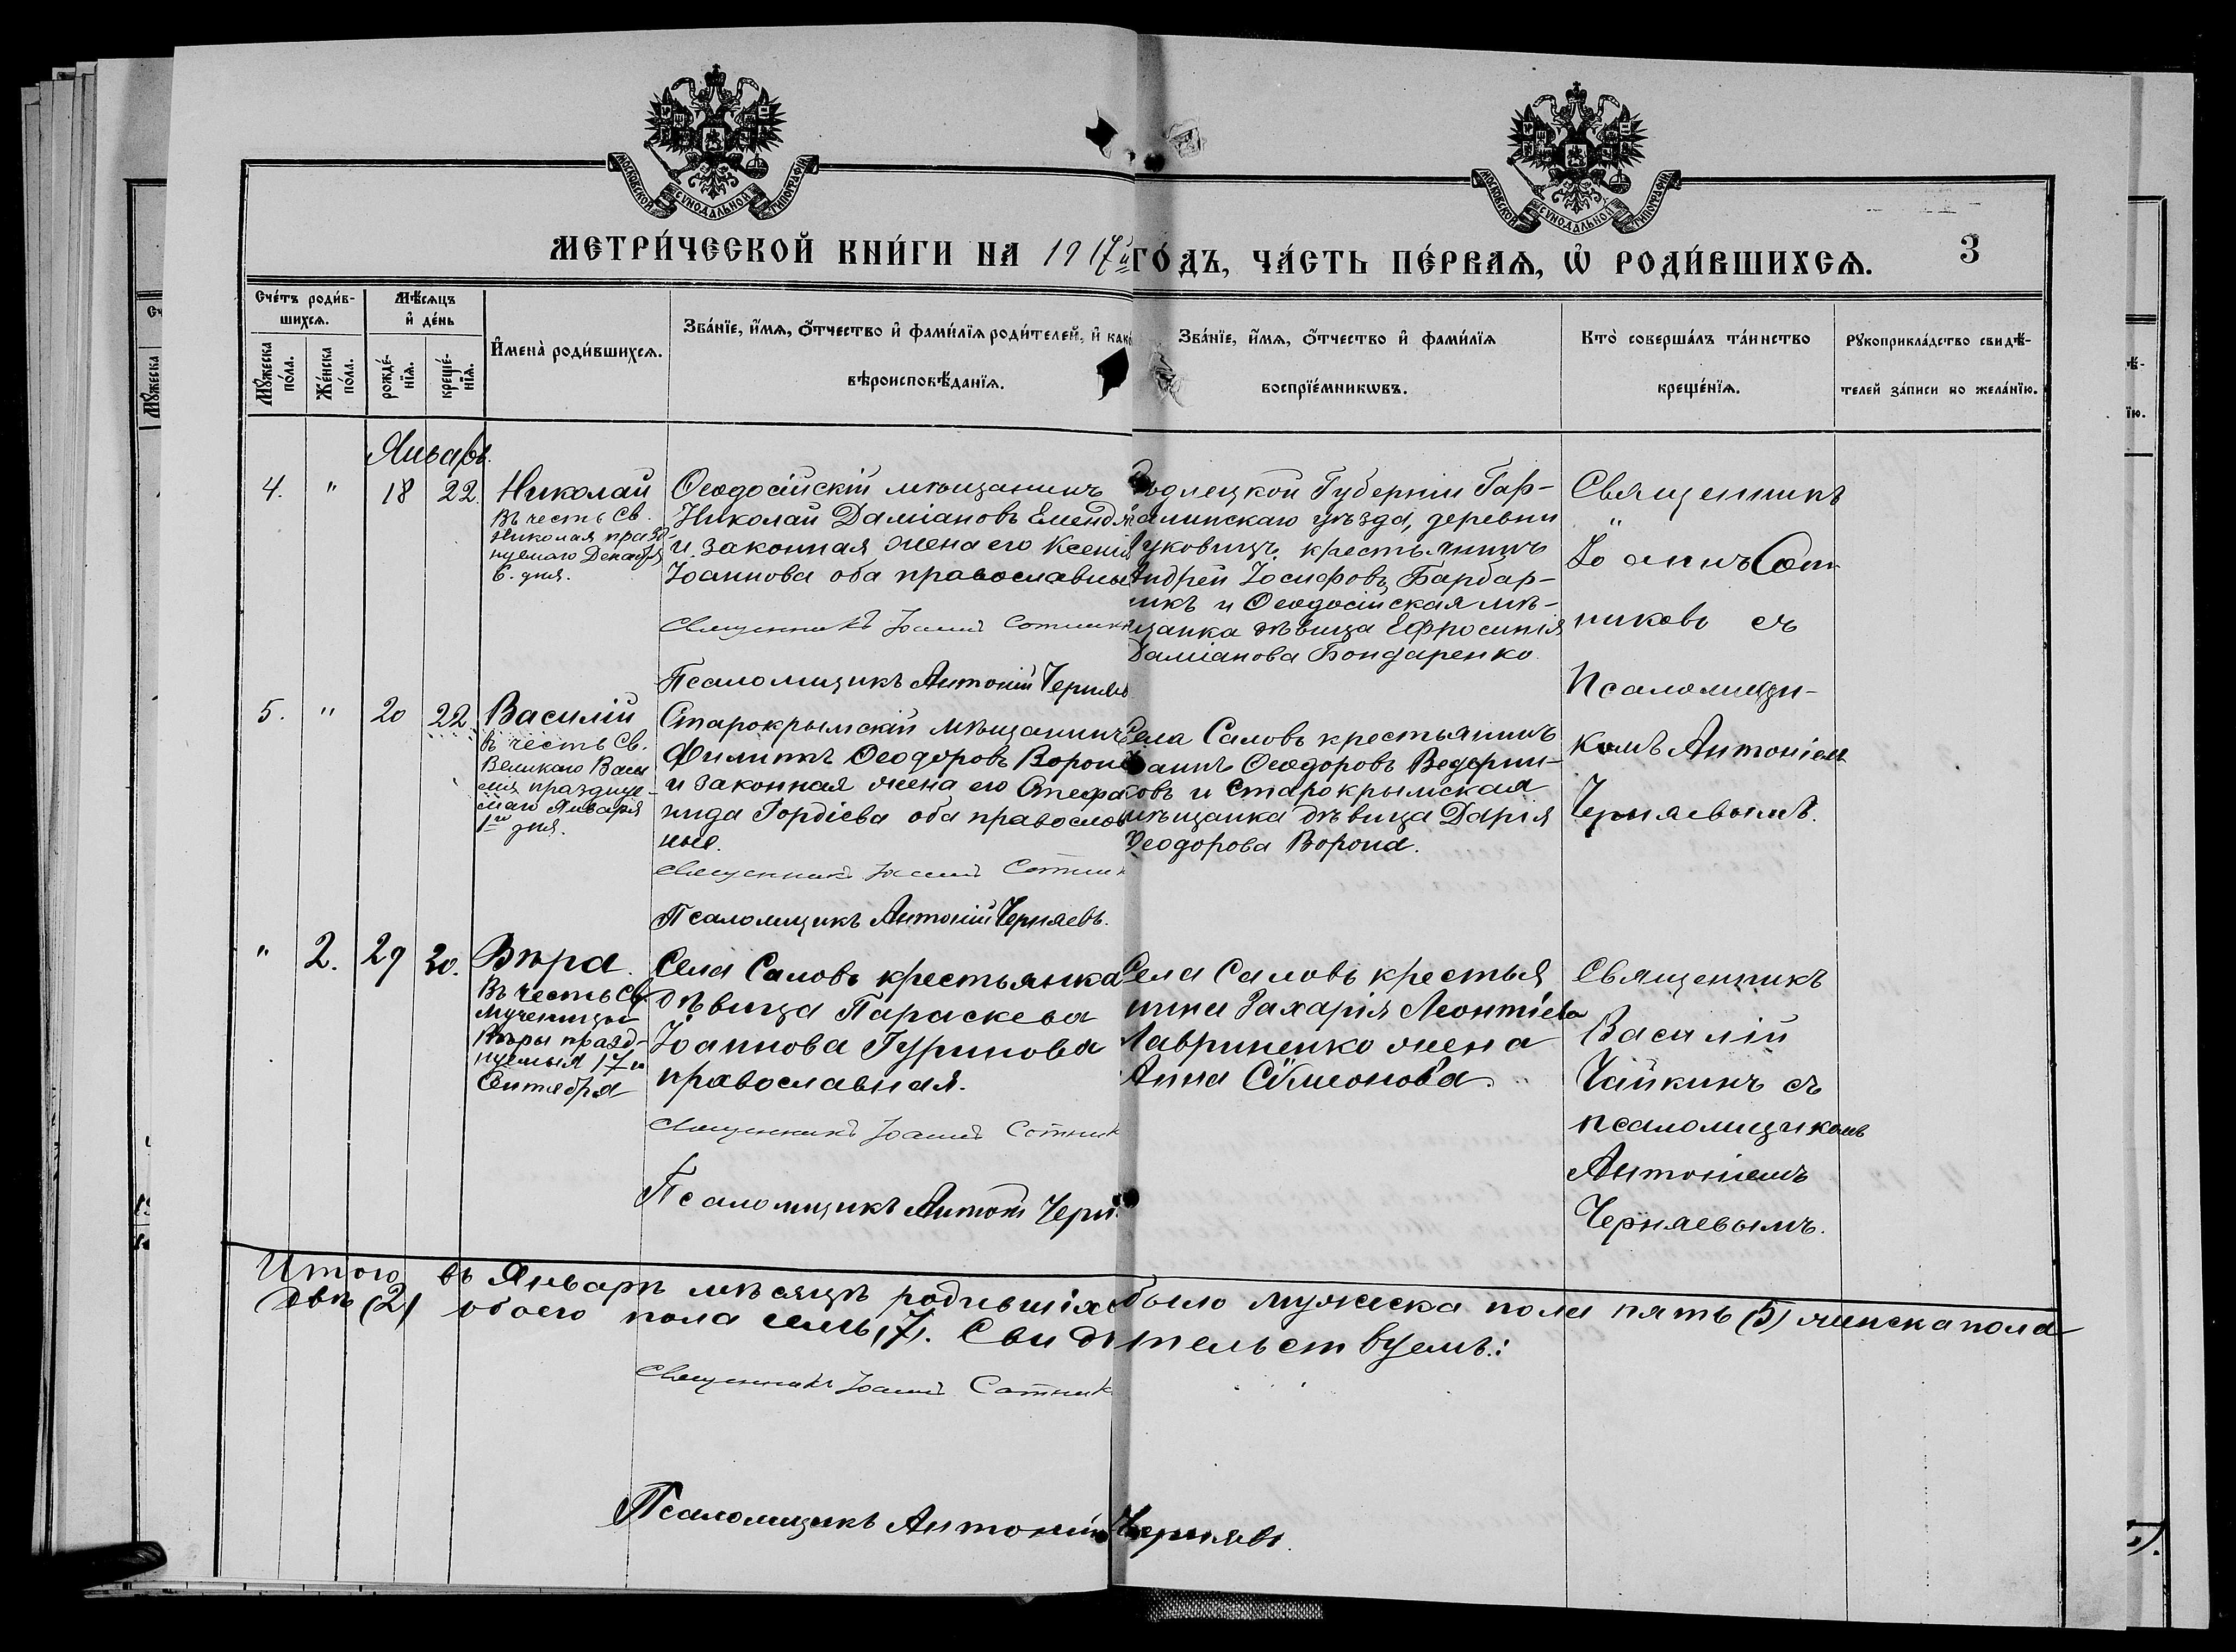 МОСКОВСКОЙ СУНОДАЛЬНОЙ ТИПОГРАФІИ
МОСКОВСКОЙ СУНОДАЛЬНОЙ ТИПОГРАФІИ
МЕТРИ́ЧЕСКОЙ КНИ́ГИ НА 1917й ГО́ДЪ, ЧА́СТЬ ПЕ́РВАѦ, Ѡ҆ РОДИ́ВШИХСѦ. 3
Сче́тъ роди́в-
шихсѧ.
Мꙋ́жеска
по́ла.
Же́нска
по́ла.
Мѣ́сѧцъ
и҆ де́нь
рожде́-
нїѧ.
креще́-
нїѧ.
И҆мена̀ роди́вшихсѧ.
Зва́нїе, и҆́мѧ, ѻ҆́тчество и҆ фами́лїѧ роди́телей, и҆ како́
вѣроисповѣ́данїѧ.
Зва́нїе, и҆́мѧ, ѻ҆́тчество и҆ фами́лїѧ
воспрїе́мникѡвъ.
Кто̀ соверша́лъ та́инство
креще́нїѧ.
Рꙋкоприкла́дство свидѣ́-
телей за́писи по жела́нїю.
Январь.
4. " 18 22.
Николай
Въ честь Св.
Николая празд
нуемаго Декабря
6. дня.
Ѳеодосійскій мѣщанинъ
Николай Даміановъ
и законная жена его Ксенія
Іоаннова оба православные
Священникъ Іоаннъ Сотник
Псаломщикъ Антоній Черняев
Губерніи Гар-
валинскаго уѣзда, деревни
крестьянинъ
Андрей Іосифовъ Барбар-
чикъ и Ѳеодосійская мѣ-
щанка дѣвица Ефросинія
Даміанова Бондаренко.
Священникъ
"
Іоаннъ Сот-
никовъ съ
Псаломщи-
комъ Антоніемъ
Черняевымъ.
5. " 20 22
Василій
Въ честь Св.
Великаго Васи
лія празднуе-
маго Января
1го дня.
Старокрымскій мѣщанинъ
Филиппъ Ѳеодоровъ Ворона
и законная жена его Стефа
нида Гордіева оба православ
ные.
Священникъ Іоаннъ Сотник
Псаломщикъ Антоній Черняевъ.
Села Саловъ крестьянинъ
Іоаннъ Ѳеодоровъ Ведерни-
ковъ и Старокрымская
мѣщанка дѣвица Дарія
Ѳеодорова Ворона.
" 2. 29 30.
Вѣра.
Въ честь Св.
Мученицы
Вѣры празд-
нуемыя 17го
Сентября
Села Саловъ крестьянка
дѣвица Параскева
Іоаннова Гуринова
православная.
Священникъ Іоаннъ Сотник
Псаломщикъ Антоній Черн
Села Саловъ крестья
нина Захарія Леонтіева
Лавриненко жена
Анна Сѵмеонова.
Священникъ
Василій
Чайкинъ съ
псаломщикомъ
Антоніемъ
Черняевымъ.
Итого въ Январѣ мѣсяцѣ родившихся было мужеска пола пять (5) женска пола
двѣ (2) обоего пола семь (7). Свидѣтельствуемъ:
Священникъ Іоаннъ Сотник
Псаломщикъ Антоній Черняевъ.